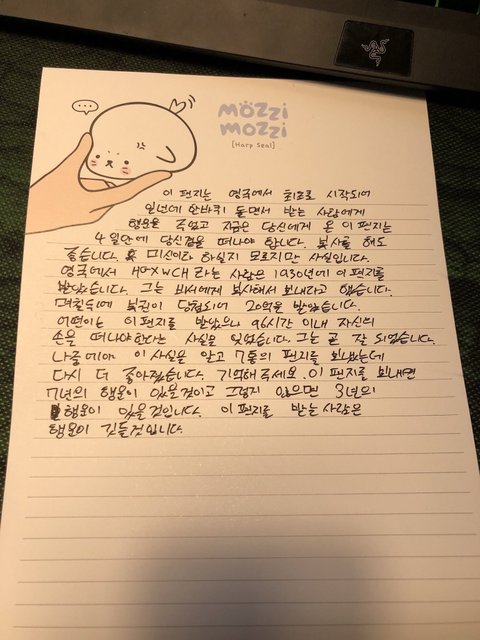 MöZZi
MOZZi
[Harp Seal]
이 편지는 영국에서 최초로 시작되어
일년에 한바퀴 돌면서 받는 사람에게
행운을 주었고 지금은 당신에게 온 이 편지는
4일안에 당신곁을 떠나야 합니다. 복사를 해도
좋습니다. 혹 미신이라 하실지 모르지만 사실입니다.
영국에서 HGXWCH 라는 사람은 1930년에 이 편지를
받았습니다. 그는 비서에게 복사해서 보내라고 했습니다.
며칠뒤에 복권이 당첨되어 20억을 받았습니다.
어떤이는 이 편지를 받았으나 96시간 이내 자신의
손을 떠나야한다는 사실을 잊었습니다. 그는 곧 되었습니다.
나중에야 이 사실을 알고 7통의 편지를 보냈는데
다시 더 좋아졌습니다. 기억해주세요. 이 편지를 보내면
7년의 행운이 있을것이고 그렇지 않으면 3년의
행운이 있을것입니다. 이 편지를 받는사람은
행운이 깃들것입니다.